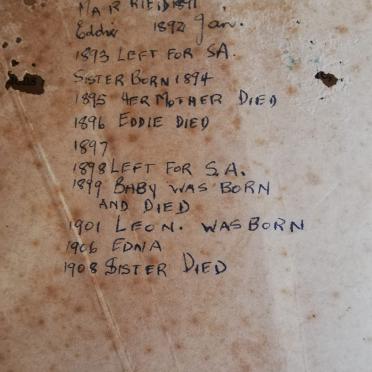 MARRIED 1891
Eddie 1892 Jan.
1893 LEFT FOR SA.
SISTER BORN 1894
1895 HER MOTHER DIED
1896 EDDIE DIED
1897
1898 LEFT FOR S.A.
1899 BABY WAS BORN
AND DIED
1901 LEON. WAS BORN
1906 EDNA
1908 SISTER DIED